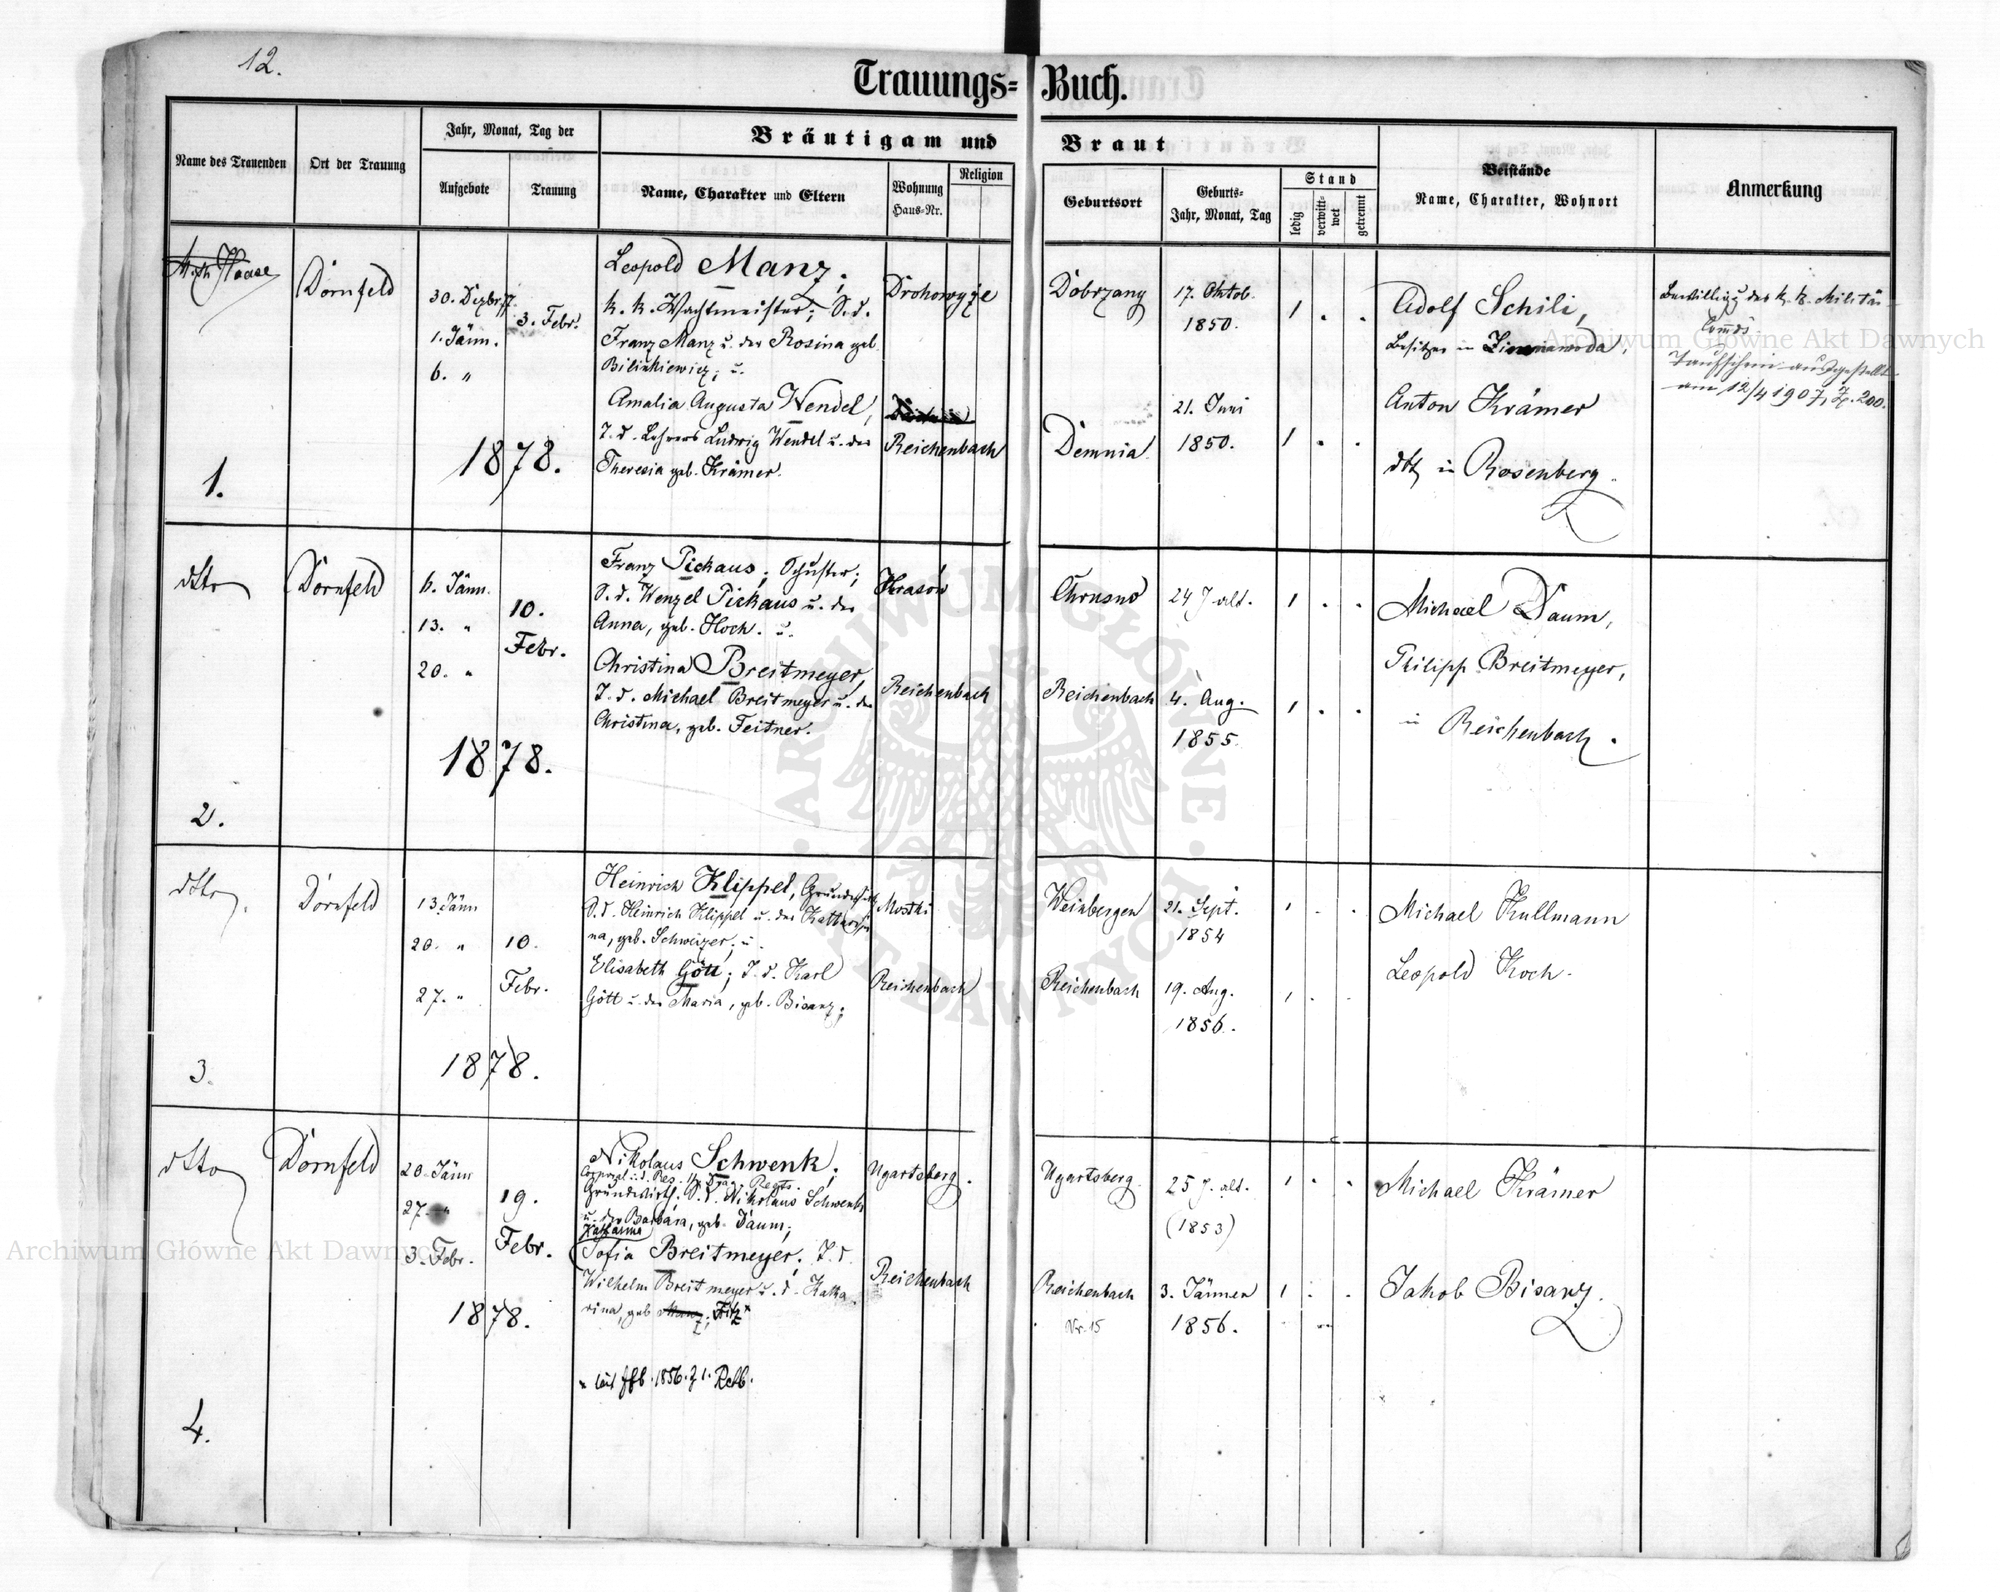 12.
Trauungs= Buch.
Name des Trauenden
Ort der Trauung
Jahr, Monat, Tag der
Aufgebote
Trauung
Bräutigam und Braut
Name, Charakter und Eltern
Wohnung
Haus=Nr.
Religion
Geburtsort
Geburts=
Jahr, Monat, Tag
Stand
ledig
verwitt=
wet
getrennt
Beistände
Name, Charakter, Wohnort
Anmerkung
Haase
Dornfeld
30. Dezbr. 77.
1. Jänn.
6. "
3. Febr.
1878.
1.
Leopold Manz,
k. k. Wachtmeister; S. d.
Franz Manz u. der Rosina geb.
Bilinkiewicz; u.
Amalia Augusta Wendel,
T. d. Lehrers Ludwig Wendel u. der
Theresia geb. Krämer.
Drohowyże
Reichenbach
Dobrzany
Demnia
17. Oktob.
1850.
21. Juni
1850.
1 . .
1 . .
Adolf Schili,
Besitzer in
Anton Krämer
dto in Rosenberg.
Bewillig. des k. k. Militär
Comds
Taufschein ausgestellt
am 12/4 1907, Z. 200.
dtto
Dornfeld
6. Jänn.
13. "
20. "
10.
Febr.
1878.
2.
Franz Pickaus, Schuster;
S. d. Wenzel Pickaus u. der
Anna, geb. Hoch. u.
Christina Breitmeyer,
T. d. Michael Breitmeyer u. der
Christina, geb. Feitner.
Krasów
Reichenbach
Chrusno
Reichenbach
24 J. alt.
4. Aug.
1855.
1 . .
1 . .
Michael Daum,
Philipp Breitmeyer,
in Reichenbach.
dtto
Dornfeld
13. Jänn
20. "
27. "
10.
Febr.
1878.
3.
Heinrich Klippel,
S. d. Heinrich Klippel u. der Kathari=
na, geb. Schweizer; u.
Elisabeth Gött; T. d. Karl
Gött u. der Maria, geb. Bisanz.
Mostki
Reichenbach
Weinbergen
Reichenbach
21. Sept.
1854
19. Aug.
1856.
1 . .
1 . .
Michael Kullmann
Leopold Koch.
dtto
Dornfeld
20. Jänn
27. "
3. Febr.
19.
Febr.
1878.
4.
Nikolaus Schwenk,
Grundwirth. S. d. Nikolaus Schwenk
u. der Barbara, geb. Daum;
Katharina
Sofia Breitmeyer, T. d.
Wilhelm Breitmeyer u. d. Katha
rina, geb. Manz; Fitz ×
Ugartsberg.
Reichenbach
Ugartsberg
Reichenbach
Nr. 15
25 J. alt.
(1853)
3. Jänner
1856.
1 . .
1 . .
Michael Krämer
Jakob Bisanz.
Archiwum Główne Akt Dawnych
Archiwum Główne Akt Dawnych
ARCHIWUM GŁÓWNE AKT DAWNYCH